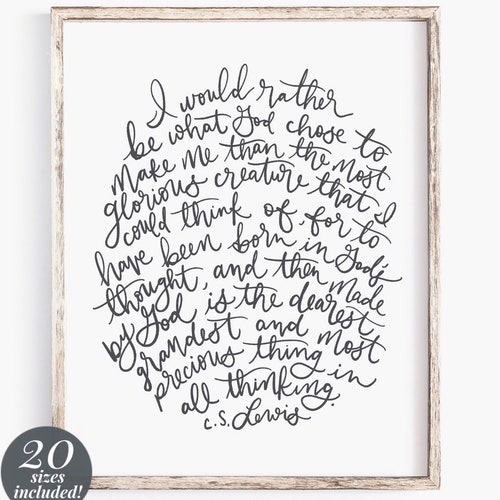 I would rather
be what God chose to
make me than the most
glorious creature that I
could think of, for to
have been born in God's
thought, and then made
by God is the dearest,
grandest and most
precious thing in
all thinking.
C.S. Lewis
20
sizes
included!